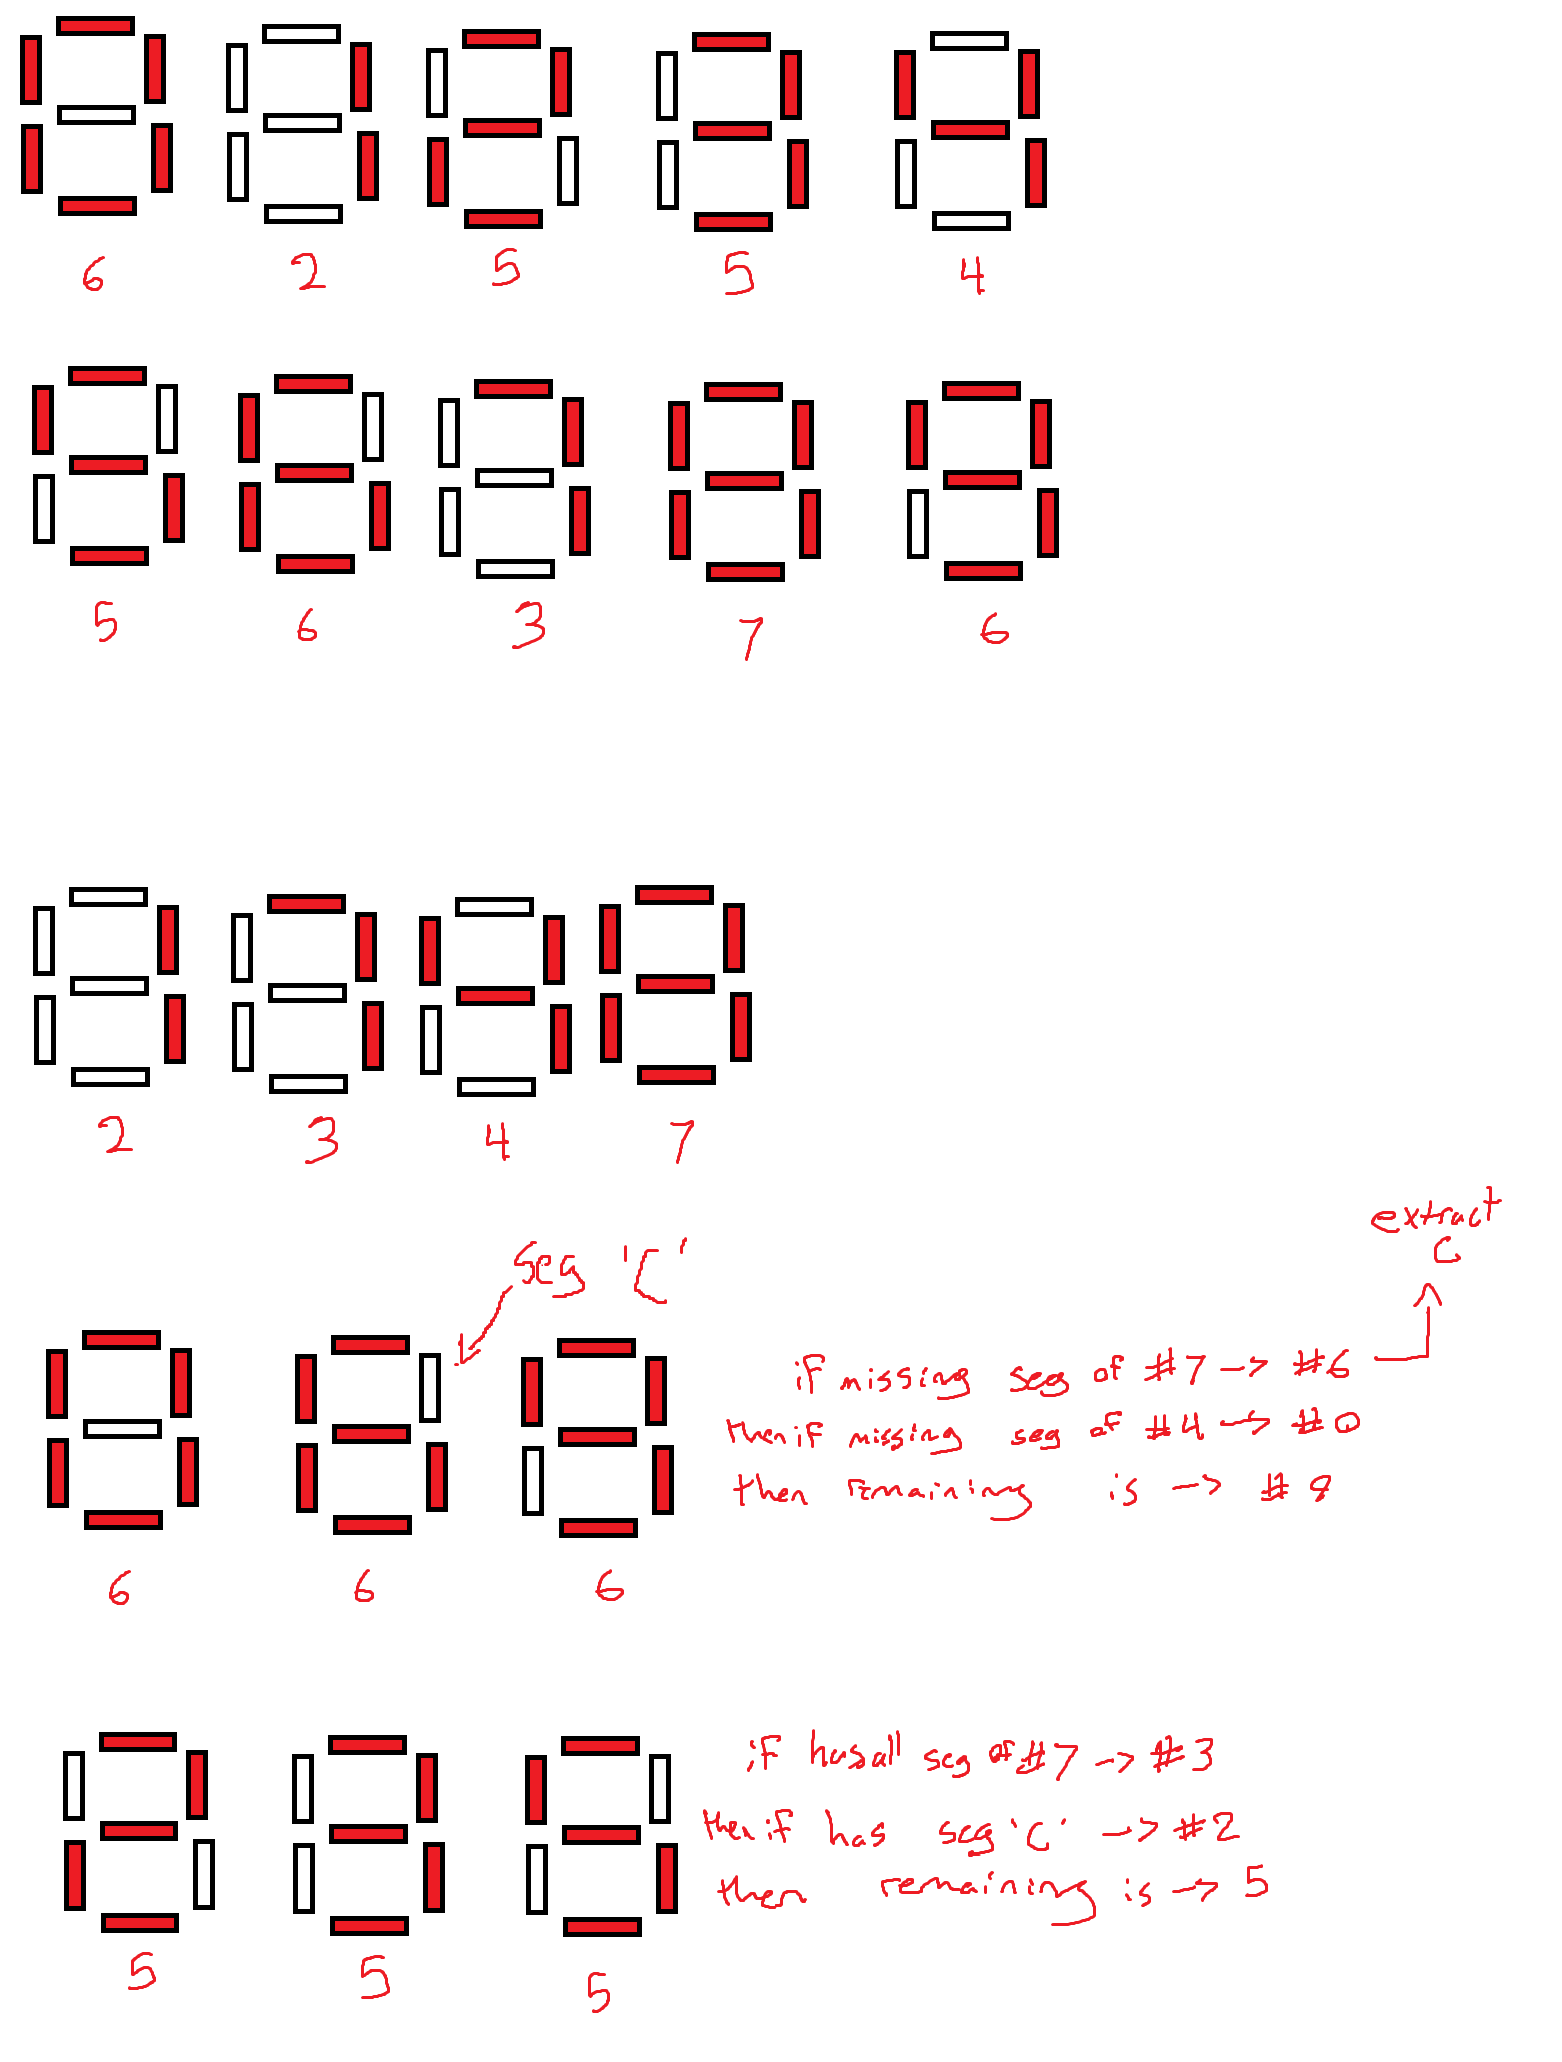 6 2 5 5 4
5 6 3 7 6
2 3 4 7
seg 'C'
extract
C
if missing seg of #7 -> #6
then if missing seg of #4 -> #0
then remaining is -> #9
6 6 6
if has all seg of #7 -> #3
then if has seg 'C' -> #2
then remaining is -> 5
5 5 5